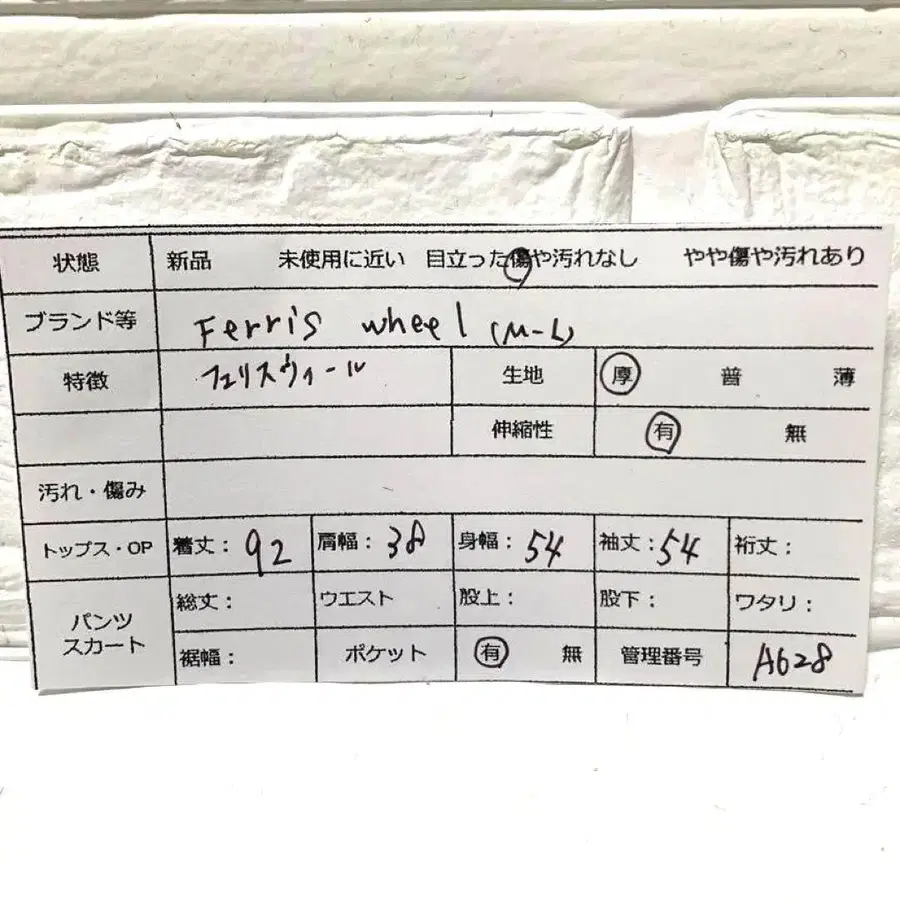 状態 新品 未使用に近い 目立った傷や汚れなし やや傷や汚れあり
ブランド等 Ferris wheel (M-L)
特徴 フェリスウィール 生地 厚 普 薄
伸縮性 有 無
汚れ・傷み
トップス・OP 着丈: 92 肩幅: 38 身幅: 54 袖丈: 54 裄丈:
パンツ スカート 総丈: ウエスト 股上: 股下: ワタリ:
裾幅: ポケット 有 無 管理番号 A628